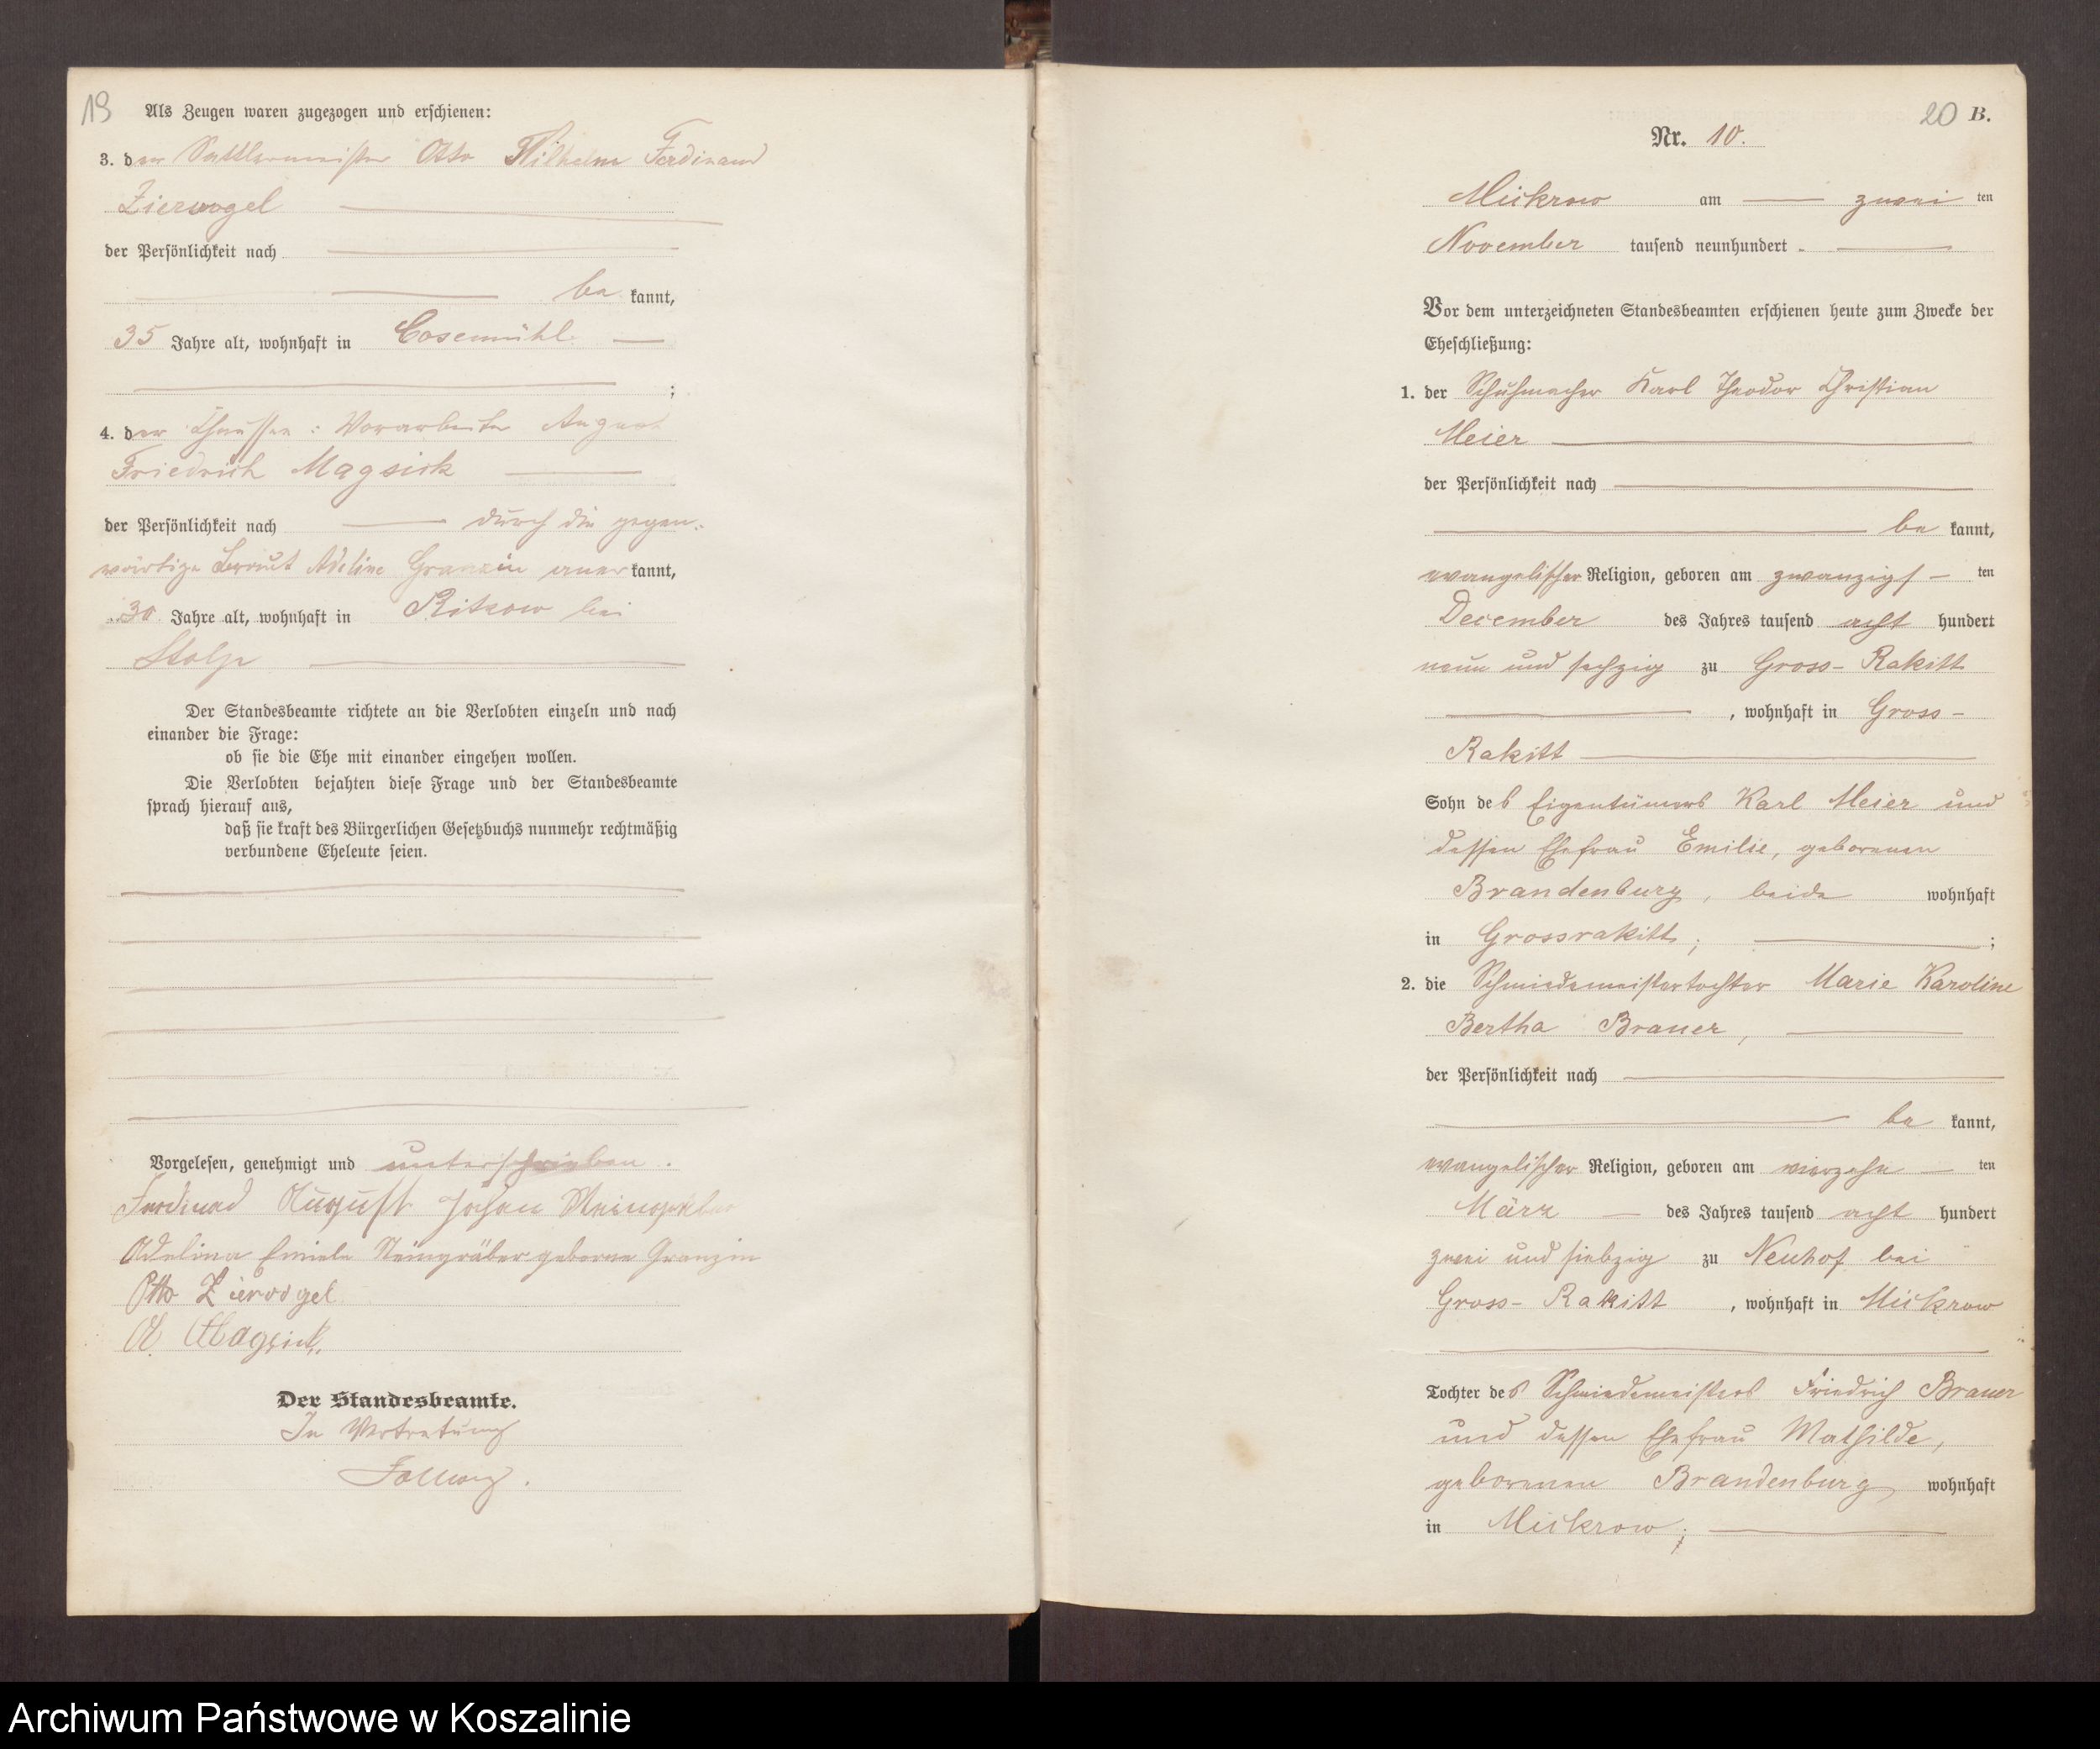 19
Als Zeugen waren zugezogen und erschienen:
3. der Sattlermeister Otto Wilhelm Ferdinand
Ziervogel
der Persönlichkeit nach
be kannt,
35 Jahre alt, wohnhaft in Cosemühl
;
4. der Chaussee: Vorarbeiter August
Friedrich Magsick
der Persönlichkeit nach durch die gegen:
wärtige Braut Adeline Granzin aner kannt,
30 Jahre alt, wohnhaft in Ritzow bei
Stolp
Der Standesbeamte richtete an die Verlobten einzeln und nach
einander die Frage:
ob sie die Ehe mit einander eingehen wollen.
Die Verlobten bejahten diese Frage und der Standesbeamte
sprach hierauf aus,
daß sie kraft des Bürgerlichen Gesetzbuchs nunmehr rechtmäßig
verbundene Eheleute seien.
Vorgelesen, genehmigt und unterschrieben.
Ferdinad August Johan
Steingräber geborne Granzin
Otto Ziervogel
A. Magsick.
Der Standesbeamte.
In Vertretung
20 B.
Nr. 10.
Mickrow am zwei ten
November tausend neunhundert
Vor dem unterzeichneten Standesbeamten erschienen heute zum Zwecke der
Eheschließung:
1. der Schuhmacher Karl Theodor Christian
Meier
der Persönlichkeit nach
be kannt,
evangelischer Religion, geboren am zwanzigs ten
December des Jahres tausend acht hundert
neun und sechzig zu Gross-Rakitt
, wohnhaft in Gross-
Rakitt
Sohn des Eigentümers Karl Meier und
dessen Ehefrau Emilie, geborenen
Brandenburg, beide wohnhaft
in Grossrakitt; ;
2. die Schmiedemeistertochter Marie Karoline
Bertha Brauer,
der Persönlichkeit nach
be kannt,
evangelischer Religion, geboren am vierzehn ten
März des Jahres tausend acht hundert
zwei und siebzig zu Neuhof bei
Gross-Rakitt , wohnhaft in Mickrow
Tochter des Schmiedemeisters Friedrich Brauer
und dessen Ehefrau Mathilde,
geborenen Brandenburg wohnhaft
in Mickrow;
Archiwum Państwowe w Koszalinie